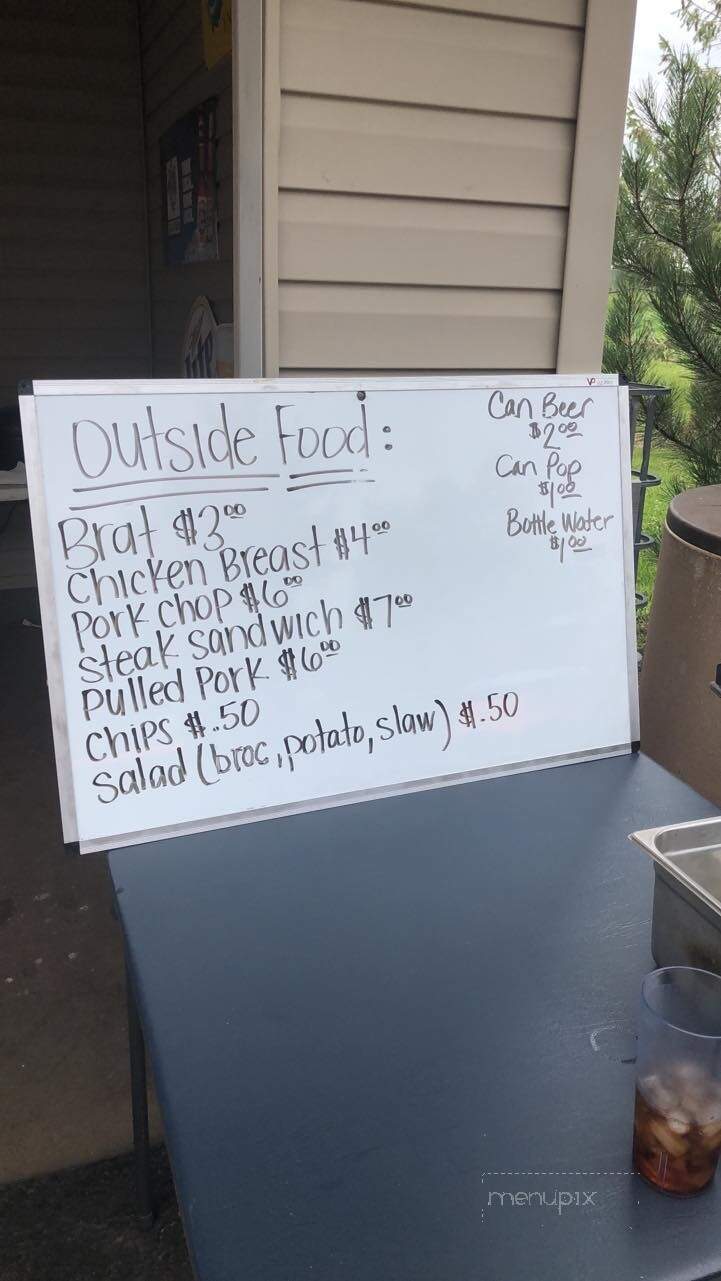 Outside Food:
Brat $3.00
Chicken Breast $4.00
Pork chop $6.00
Steak sandwich $7.00
Pulled Pork $6.00
Chips $.50
Salad (broc, potato, slaw) $.50
Can Beer
$2.00
Can Pop
$1.00
Bottle Water
$1.00
menupix